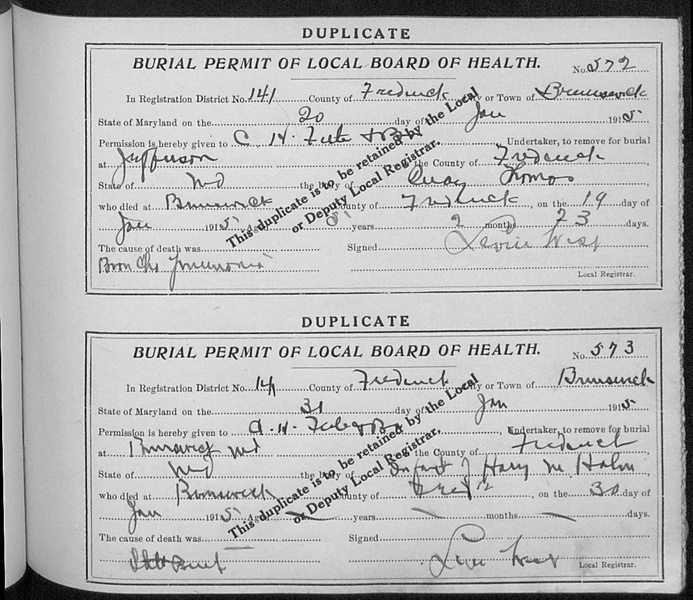 DUPLICATE
BURIAL PERMIT OF LOCAL BOARD OF HEALTH.
No. 572
In Registration District No. 141 County of Frederick City or Town of Brunswick
State of Maryland on the 20 day of Jan 1915
Permission is hereby given to C. H. Feete & Bro Undertaker, to remove for burial
at Jefferson in the County of Frederick
State of Md the body of Thomas
who died at Brunswick County of Fredrick, on the 19 day of
Jan 1915 years 2 months 23 days.
The cause of death was Signed
Bronchopneumonia West
Local Registrar.
This duplicate is to be retained by the Local
or Deputy Local Registrar.
DUPLICATE
BURIAL PERMIT OF LOCAL BOARD OF HEALTH.
No. 573
In Registration District No. 141 County of Frederick City or Town of Brunswick
State of Maryland on the 31 day of Jan 1915
Permission is hereby given to C. H. Feete & Bro, Undertaker, to remove for burial
at Brunswick Md in the County of Frederick
State of Md the body of Infant of Harry M Hahn
who died at Brunswick County of Fred'k, on the 30 day of
Jan 1915 Age — years — months — days.
The cause of death was Signed
Still Birth West
Local Registrar.
This duplicate is to be retained by the Local
or Deputy Local Registrar.